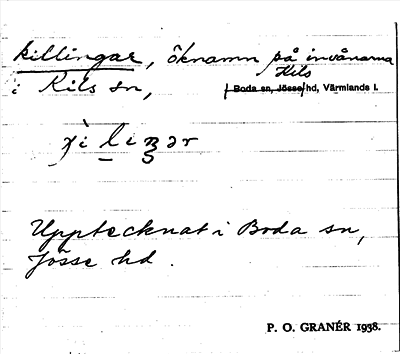 killingar, öknamn på invånarna
i Kils sn, Kils
Boda sn, Jösse hd, Värmlands l.
Upptecknat i Boda sn,
Jösse hd.
P. O. GRANÉR 1938.